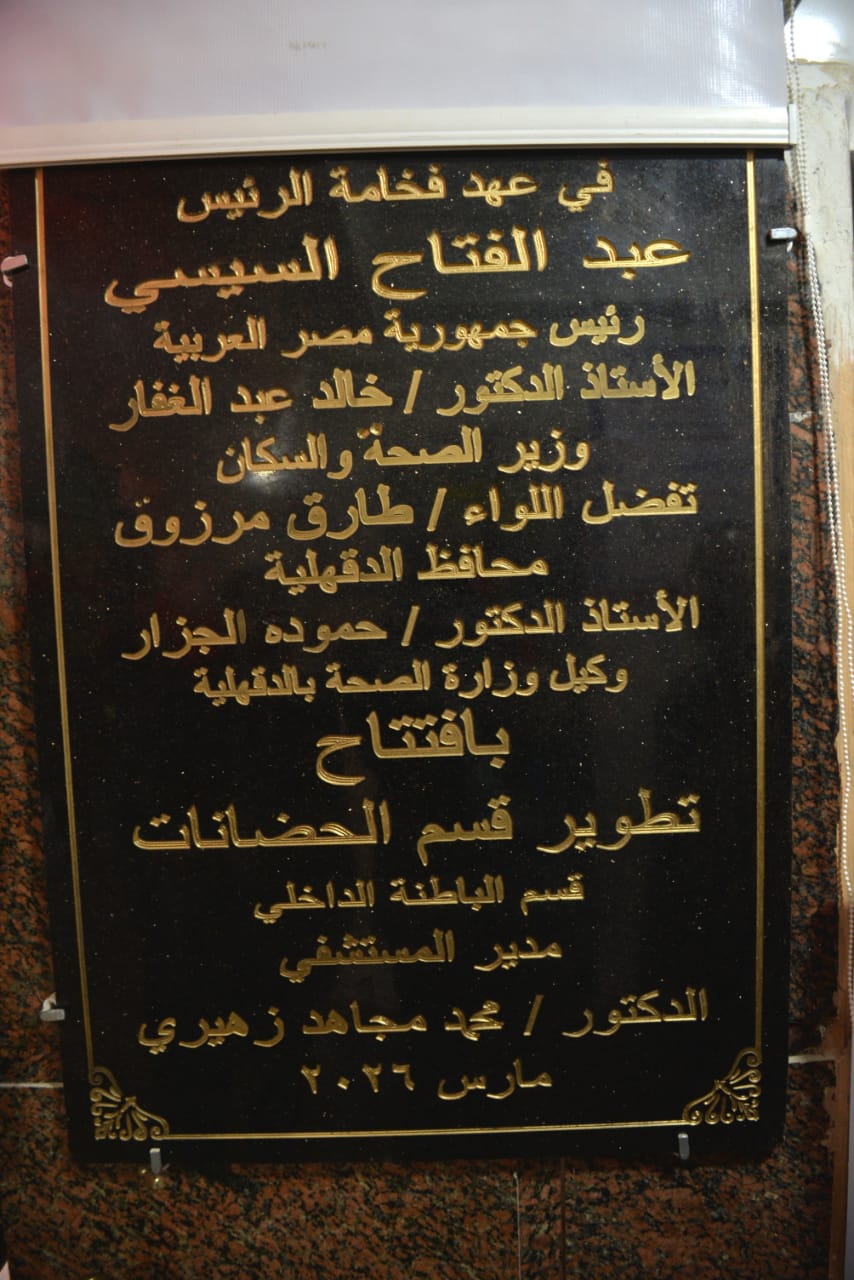 في عهد فخامة الرئيس
عبد الفتاح السيسي
رئيس جمهورية مصر العربية
الأستاذ الدكتور / خالد عبد الغفار
وزير الصحة والسكان
تفضل اللواء / طارق مرزوق
محافظ الدقهلية
الأستاذ الدكتور / حموده الجزار
وكيل وزارة الصحة بالدقهلية
بافتتاح
تطوير قسم الحضانات
قسم الباطنة الداخلي
مدير المستشفي
الدكتور / محمد مجاهد زهيري
مارس ٢٠٢٦